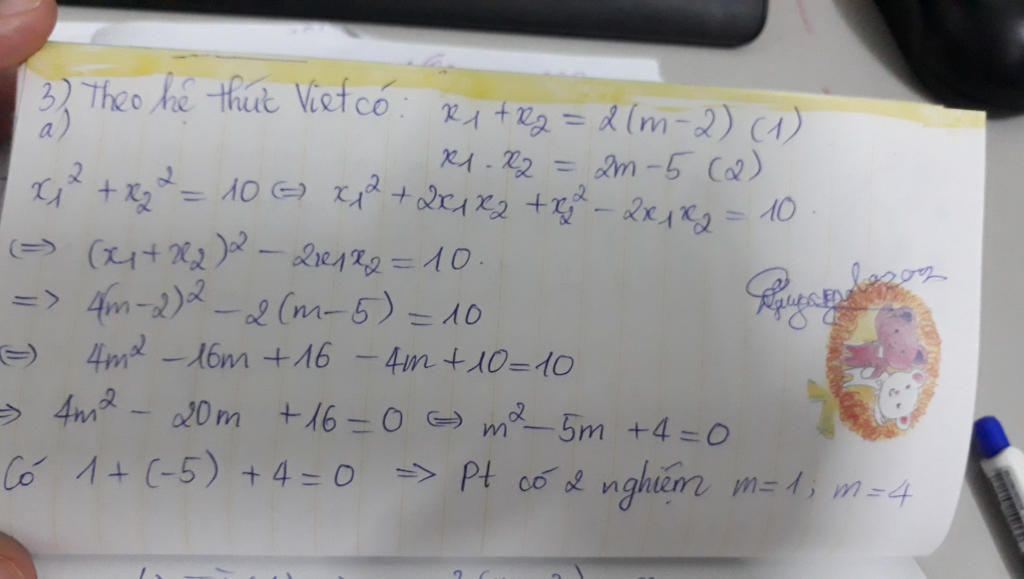 3) Theo hệ thức Viet có: x₁ + x₂ = 2(m-2) (1)
a)
x₁ . x₂ = 2m-5 (2)
x₁² + x₂² = 10 <=> x₁² + 2x₁x₂ + x₂² - 2x₁x₂ = 10.
(=> (x₁+x₂)² - 2x₁x₂ = 10.
=> 4(m-2)² - 2(m-5) = 10
<=> 4m² - 16m + 16 - 4m + 10 = 10
=> 4m² - 20m + 16 = 0 <=> m² - 5m + 4 = 0
Có 1 + (-5) + 4 = 0 => Pt có 2 nghiệm m=1; m=4